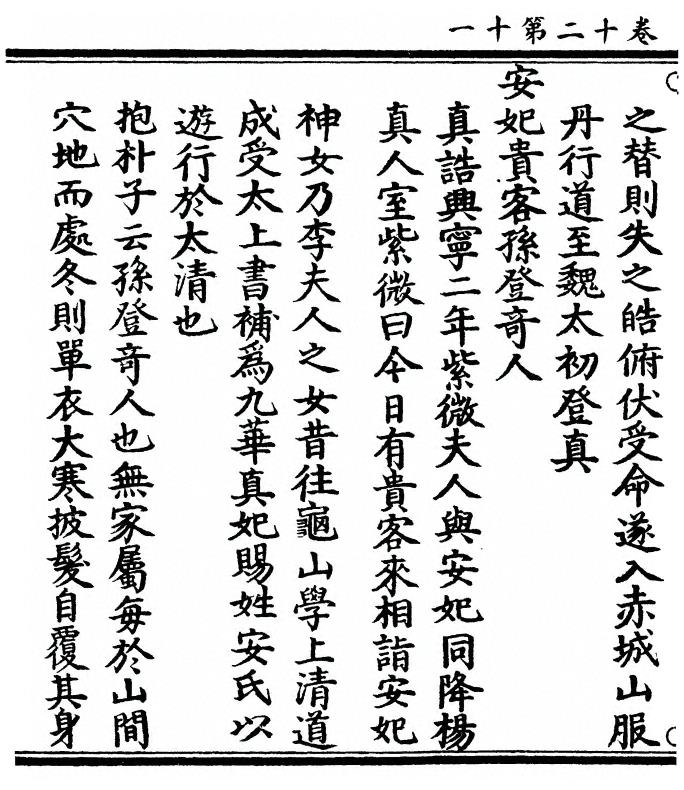 卷十二第十一
之替則失之皓俯伏受命遂入赤城山服
丹行道至魏太初登真
安妃貴客孫登奇人
真誥興寧二年紫微夫人與安妃同降楊
真人室紫微曰今日有貴客來相詣安妃
神女乃李夫人之女昔往龜山學上清道
成受太上書補為九華真妃賜姓安氏以
遊行於太清也
抱朴子云孫登奇人也無家屬每於山間
穴地而處冬則單衣大寒披髮自覆其身